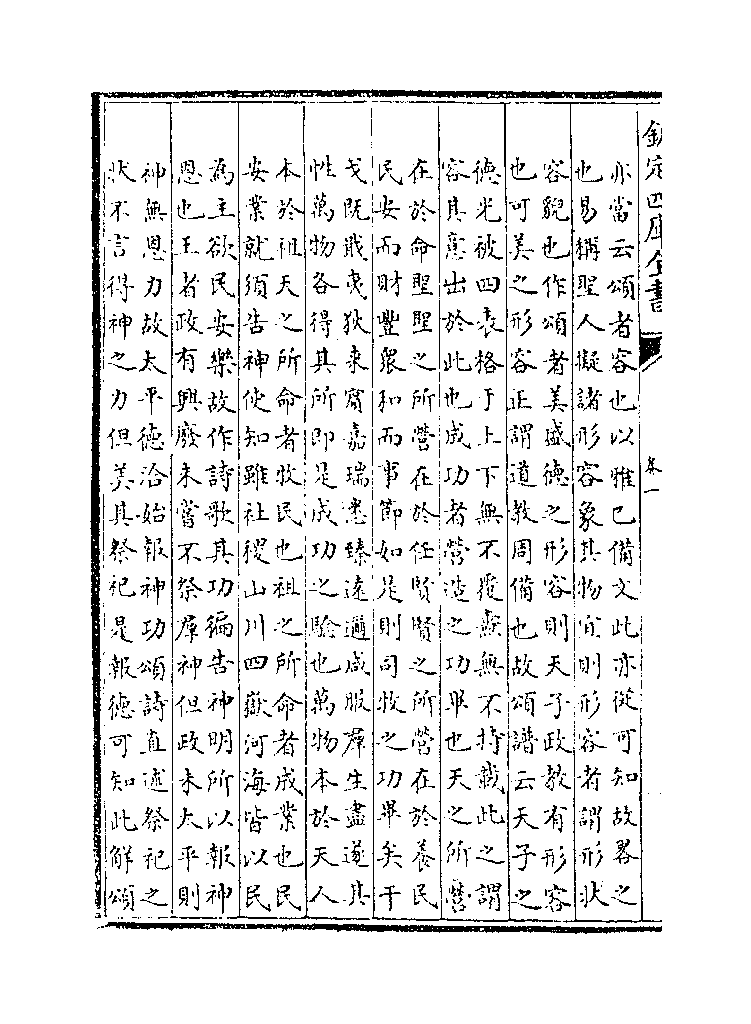 欽定四庫全書
卷一
亦當云頌者容也以雅已備文此亦從可知故畧之
也易稱聖人擬諸形容象其物宜則形容者謂形狀
容貌也作頌者美盛德之形容則天子政教有形容
也可美之形容正謂道教周備也故頌譜云天子之
德光被四表格于上下無不覆燾無不持載此之謂
容其意出於此也成功者營造之功畢也天之所營
在於命聖聖之所營在於任賢賢之所營在於養民
民安而財豐衆和而事節如是則司牧之功畢矣干
戈既戢夷狄來賓嘉瑞悉臻遠邇咸服羣生盡遂其
性萬物各得其所即是成功之驗也萬物本於天人
本於祖天之所命者牧民也祖之所命者成業也民
安業就須告神使知雖社稷山川四嶽河海皆以民
為主欲民安樂故作詩歌其功徧告神明所以報神
恩也王者政有興廢未嘗不祭羣神但政未太平則
神無恩力故太平德洽始報神功頌詩直述祭祀之
狀不言得神之力但美其祭祀是報德可知此解頌